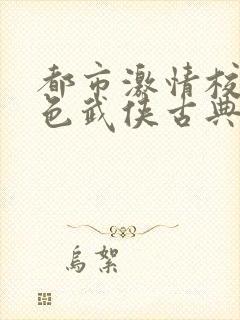 都市激情校
色武侠古典
乌絮